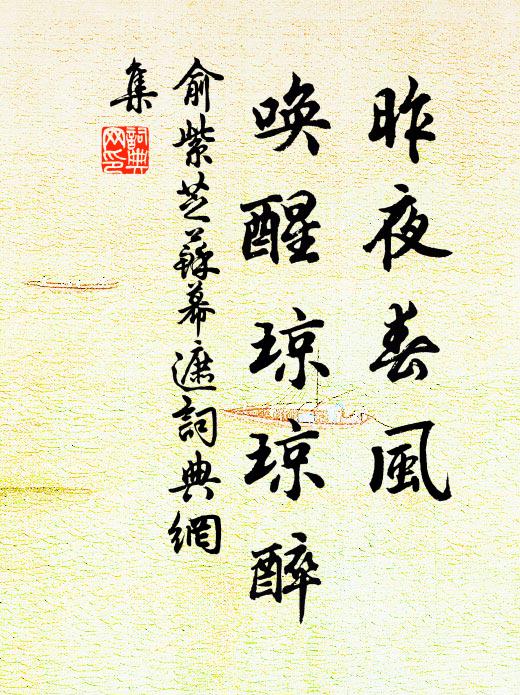 昨夜春風
喚醒琼琼醉
俞紫芝蘇幕遮詞典網
集
詞典
网印